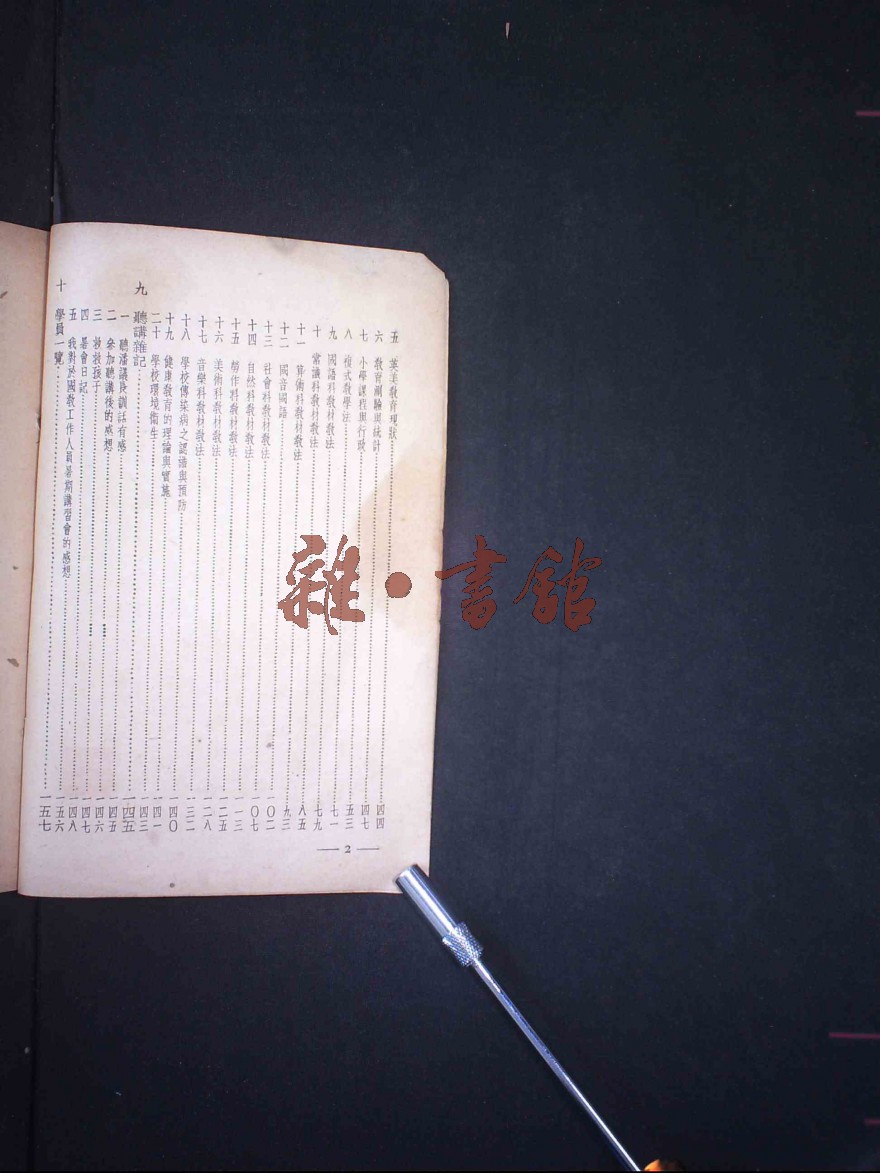 五 英美教育現狀……四四
六 教育測驗與統計……四七
七 小學課程與行政……五三
八 複式教學法……七一
九 國語科教材教法……七九
十 常識科教材教法……八五
十一 算術科教材教法……九三
十二 國音國語……一〇二
十三 社會科教材教法……一〇七
十四 自然科教材教法……一一三
十五 勞作科教材教法……一二五
十六 美術科教材教法……一二八
十七 音樂科教材教法……一三二
十八 學校傳染病之認識與預防……一四〇
十九 健康教育的理論與實施……一四一
二十 學校環境衛生……一四三
九 聽講雜記……一四五
一 聽潘議長訓話有感……一四五
二 參加聽講後的感想……一四六
三 救救孩子……一四七
四 暑會日記……一四八
五 我對於國教工作人員暑期講習會的感想……一五六
十 學員一覽……一五七
— 2 —
雜·書館